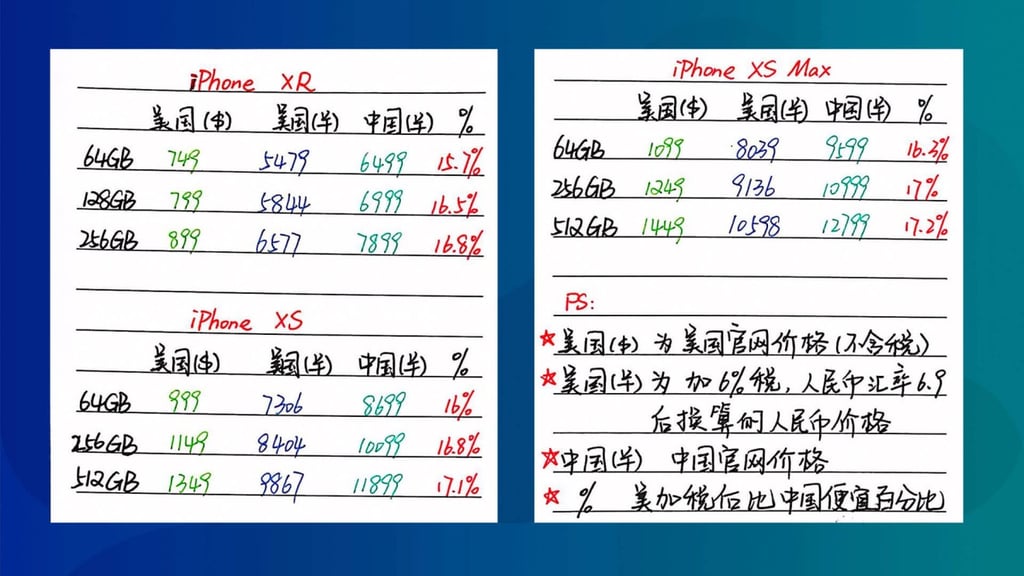 iPhone XR
美国($) 美国(¥) 中国(¥) %
64GB 749 5479 6499 15.7%
128GB 799 5844 6999 16.5%
256GB 899 6577 7899 16.8%
iPhone XS
美国($) 美国(¥) 中国(¥) %
64GB 999 7306 8699 16%
256GB 1149 8404 10099 16.8%
512GB 1349 9867 11899 17.1%
iPhone XS Max
美国($) 美国(¥) 中国(¥) %
64GB 1099 8039 9599 16.3%
256GB 1249 9136 10999 17%
512GB 1449 10598 12799 17.2%
PS:
☆美国($)为美国官网价格(不含税)
☆美国(¥)为 加6%税,人民币汇率6.9
后换算的人民币价格
☆中国(¥) 中国官网价格
☆ % 美加税后比中国便宜百分比